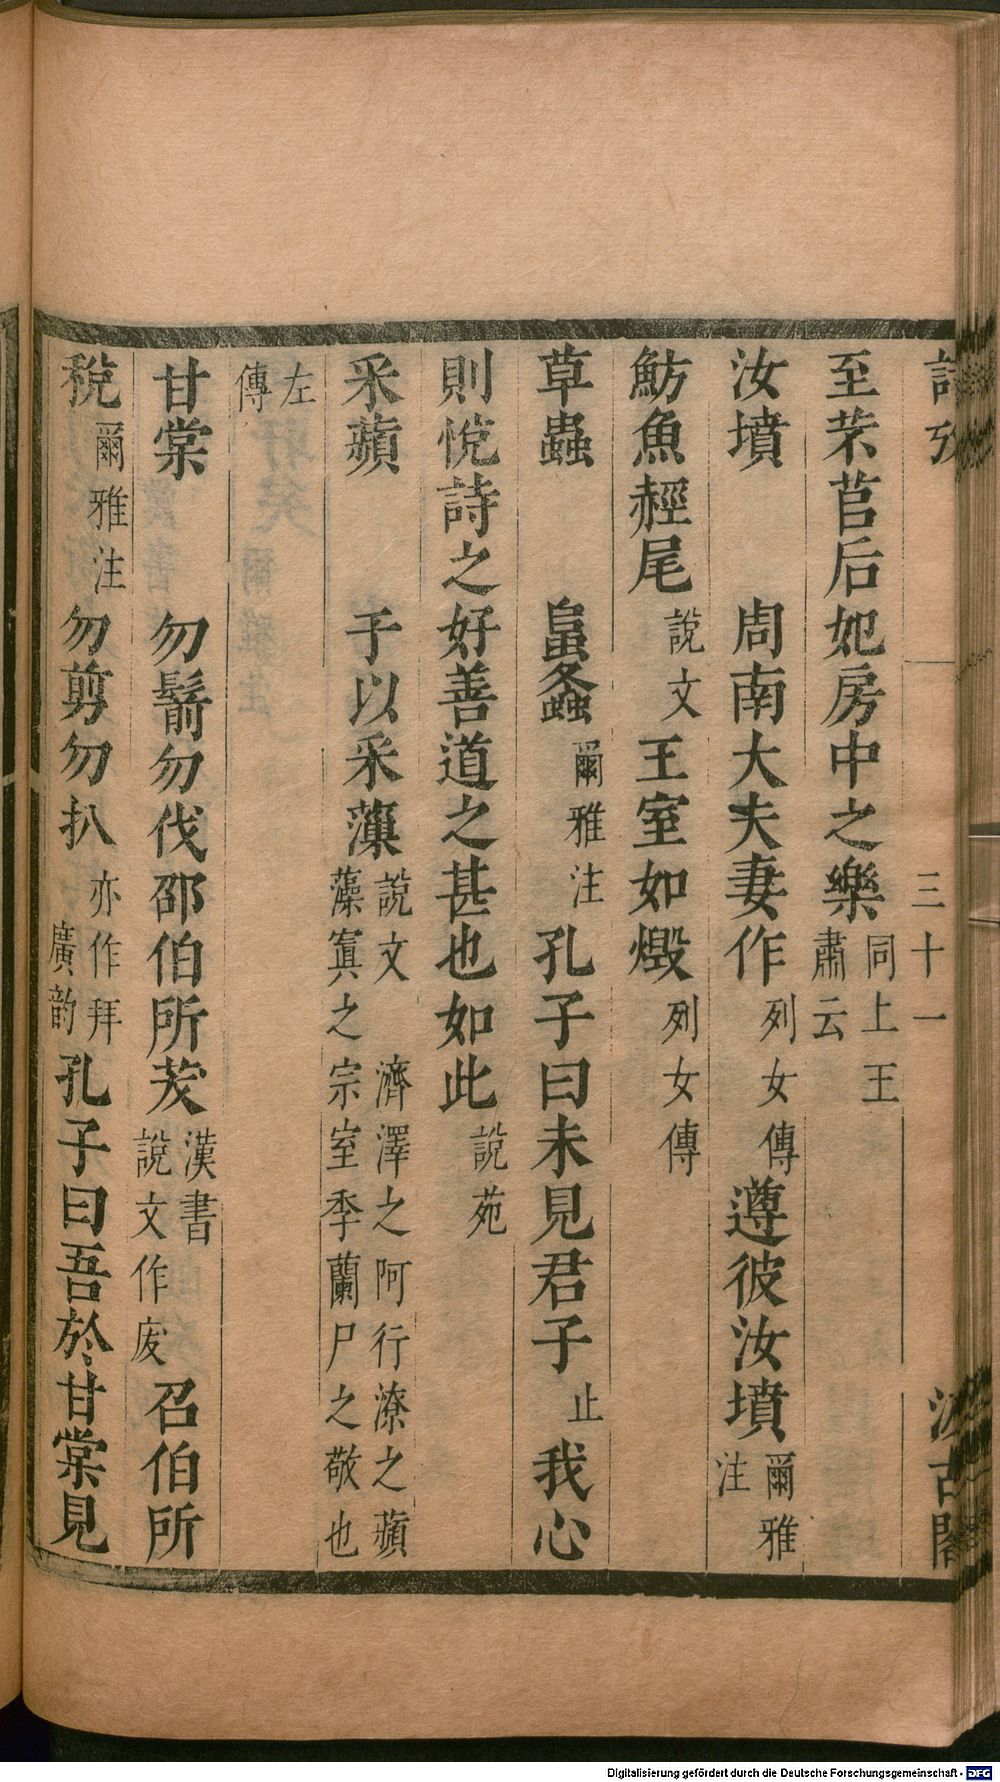 詩攷 三十一 汲古閣
至芣苢后妃房中之樂同上王肅云
汝墳 周南大夫妻作列女傳遵彼汝墳爾雅注
魴魚䞓尾說文王室如燬列女傳
草蟲 螽爾雅注孔子曰未見君子止我心
則悅詩之好善道之甚也如此說苑
采蘋 于以采薻說文藻 濟澤之阿行潦之蘋寘之宗室季蘭尸之敬也
左傳
甘棠 勿鬋勿伐邵伯所茇漢書說文作废召伯所
稅爾雅注勿剪勿扒亦作拜廣韵孔子曰吾於甘棠見
Digitalisierung gefördert durch die Deutsche Forschungsgemeinschaft - DFG